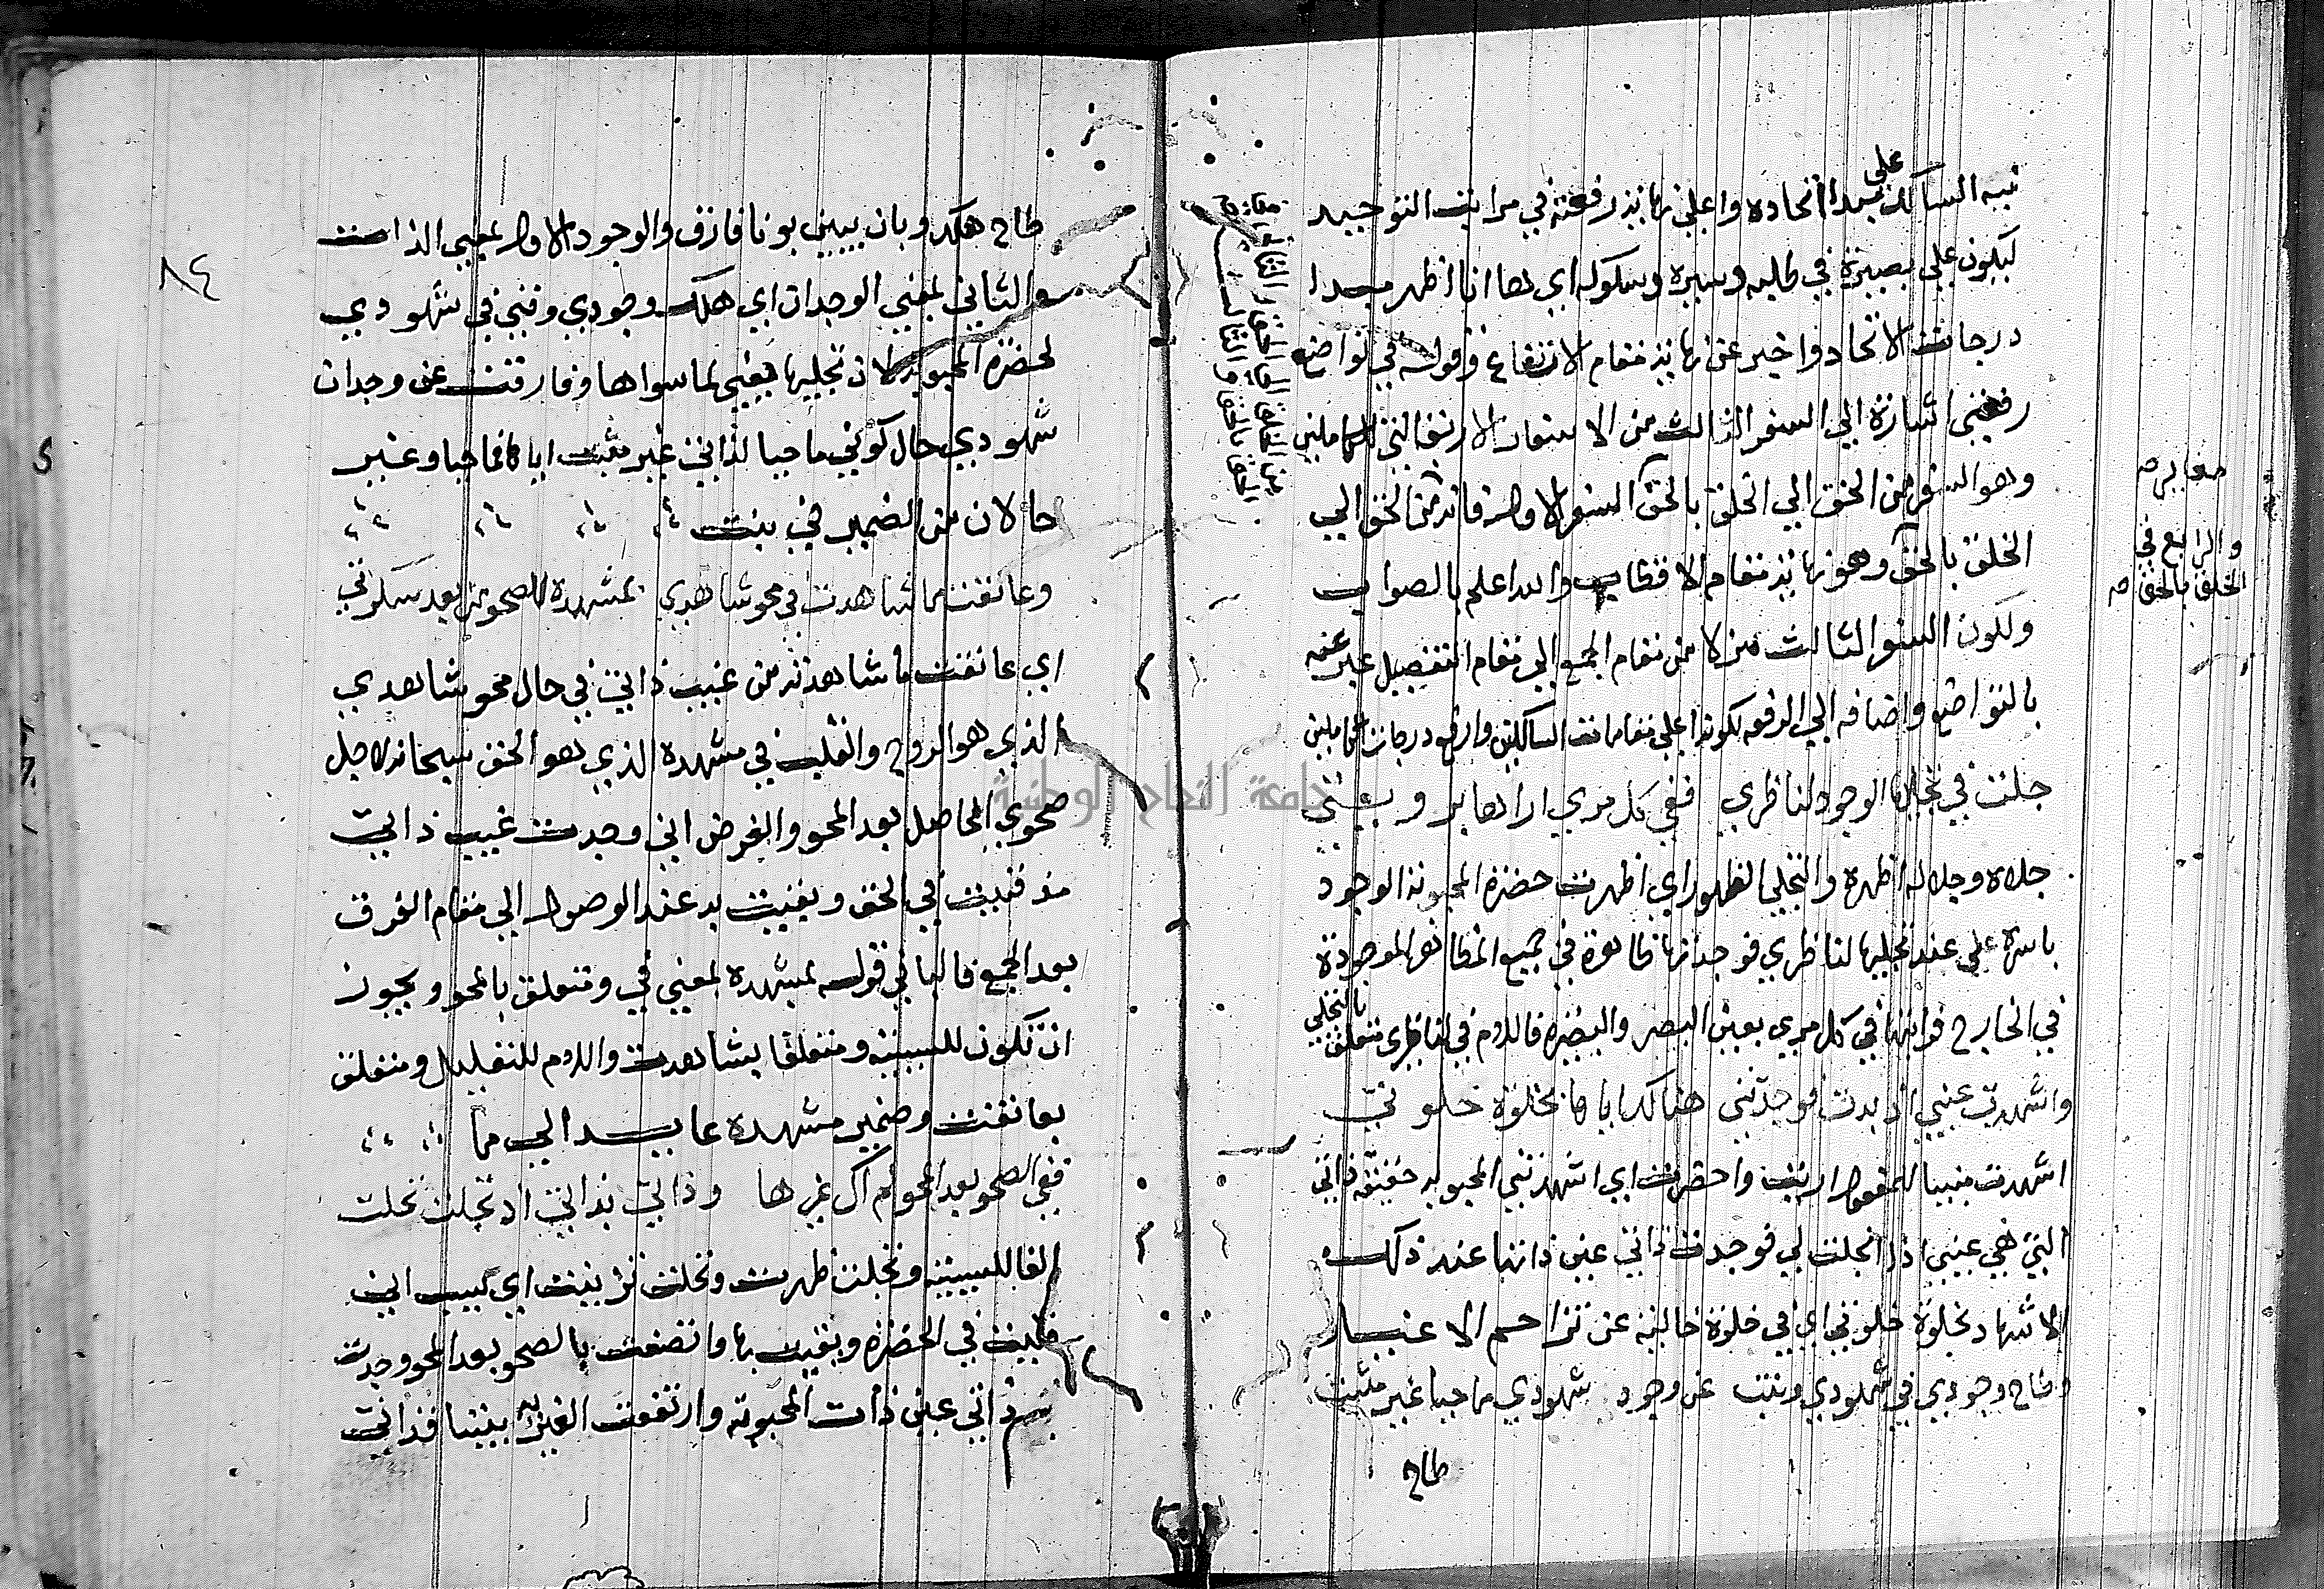 نبيه السالك على مبدأ اتحاده واعلي نهاية رفعته في مراتب التوحيد
ليكون على بصيرة في طلبه وسيره وسلوكه اي ها انا اظهر مبدا
درجات الاتحاد واخبر عن نهاية مقام الارتفاع وقوله في تواضع
رفعتي اشارة الي السفر الثالث من الاسفار الاربع التي للكاملين
وهو السفر من الحق الي الخلق بالحق السفر الاول فانه من الحق الي
الخلق بالحق وهو نهاية مقام الاقطاب والله اعلم بالصواب
ولكون السفر الثالث منزلا من مقام الجمع الي مقام التفصيل عبر عنه
بالتواضع واضافه الي الرفعة لكونه اعلي مقامات السالكين وارفع درجات الكاملين
جلت في تجليها الوجود لناظري ففي كل مرئي اراها برؤيتي
جلاه وجلا له اظهره والتجلي الظهور اي اظهرت حضرة المحبوبة الوجود
باسره علي عند تجليها لناظري فوجدتها ظاهرة في جميع المظاهر الموجودة
في الخارج فرايتها في كل مرئي بعين البصر والبصيرة فاللام في لناظري متعلق بالتجلي
واشهدت عيني اذ بدت فوجدتني هنالك اياها بخلوة خلوتي
اشهدت مبنيا للمفعول اريت واحضرت اي اشهدتني المحبوبة حقيقة ذاتي
التي هي عيني اذا تجلت لي فوجدت ذاتي عين ذاتها عند ذلك
الاشهاد بخلوة خلوتي اي في خلوة خالية عن تزاحم الاغيار
وطاح وجودي في شهودي وبنت عن وجود شهودي ماحيا غير مثبت
طاح
والرابع في
الخلق بالحق صح
٨٤
طاح هلك وبان يبين بونا فارق والوجود الاول بمعني الذات
والثاني بمعني الوجدان اي هلك وجودي وفني في شهودي
لحضرة المحبوبة لان تجليها يفني لما سواها وفارقت عن وجدان
شهودي حال كوني ماحيا لذاتي غير مثبت اياها فماحيا وغير
حالان من الضمير في بنت
وعانقت ما شاهدت في محو شاهدي بمشهده للصحو من بعد سكرتي
اي عانقت ما شاهدته من غيب ذاتي في حال محو شاهدي
الذي هو الروح والقلب في مشهده الذي هو الحق سبحانه لاجل
صحوي الحاصل بعد المحو والغرض اني وجدت غيب ذاتي
مذ فنيت في الحق وبقيت به عند الوصول الي مقام الفرق
بعد الجمع فالبا في قوله بمشهده بمعني في ومتعلق بالمحو ويجوز
ان تكون للسببية ومتعلقا بشاهدت واللام للتعليل ومتعلق
بعانقت وضمير مشهده عايد الي ما
ففي الصحو بعد المحو لم اك غيرها وذاتي بذاتي اذ تجلت تحلت
الفا للسببية وتجلت ظهرت وتحلت تزينت اي بسبب اني
فنيت في الحضرة وبقيت بها واتصفت بالصحو بعد المحو وجدت
ذاتي عين ذات المحبوبة وارتفعت الغيرية بيننا فذاتي